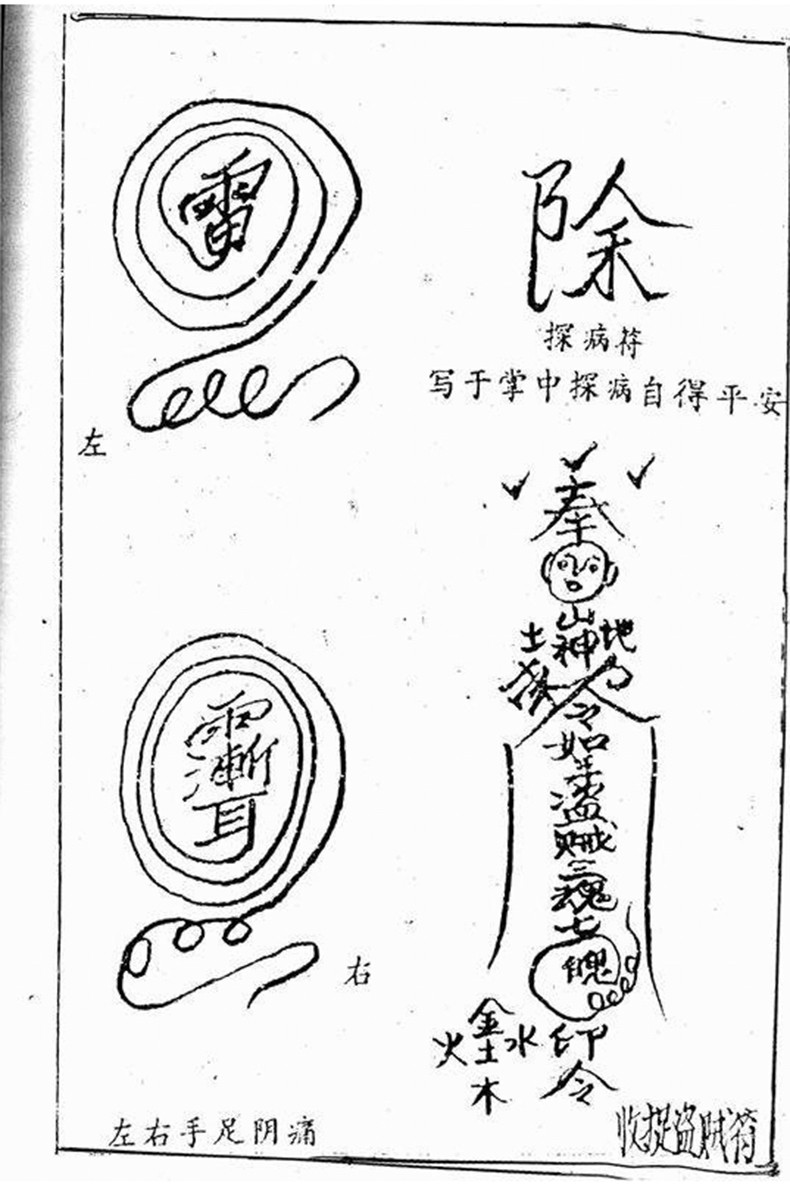 雷
左
除
探病符
写于掌中探病自得平安
奉
山
土 神 地
人
如
盗
贼
三
魂
七
魄
金
火 土 水
木
印
令
收捉盗贼符
右
左右手足阴痛